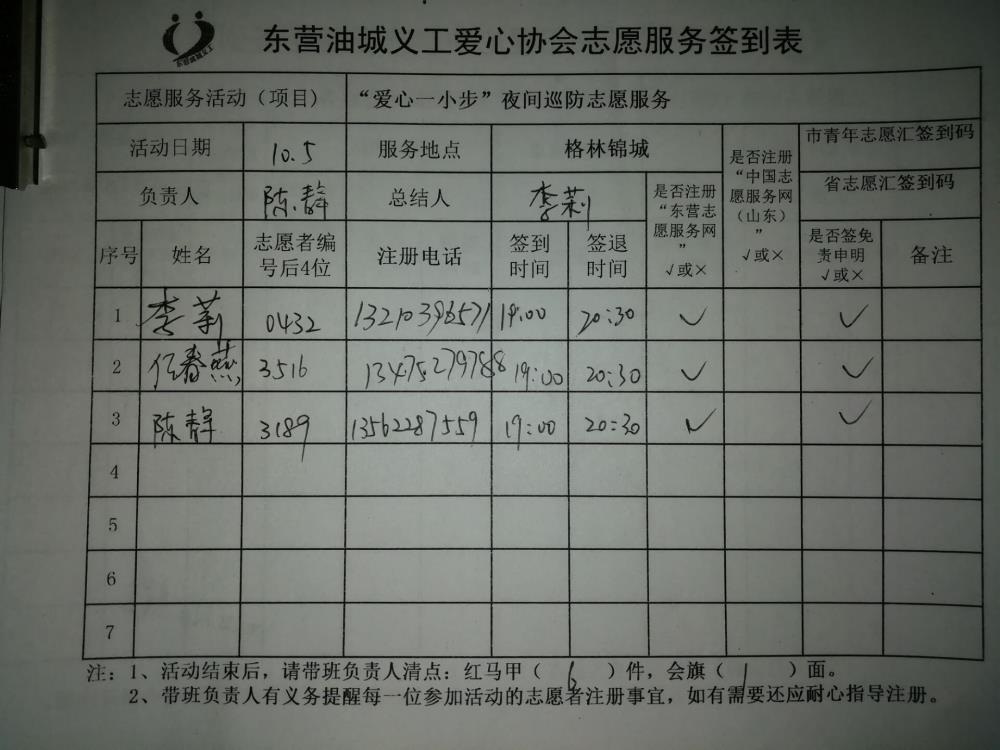 东营油城义工
东营油城义工爱心协会志愿服务签到表
志愿服务活动（项目） “爱心一小步”夜间巡防志愿服务
活动日期 10.5 服务地点 格林锦城 是否注册“中国志愿服务网（山东）” √或× 市青年志愿汇签到码
负责人 陈静 总结人 李莉 是否注册“东营志愿服务网” √或× 省志愿汇签到码
序号 姓名 志愿者编号后4位 注册电话 签到时间 签退时间 是否签免责申明 √或× 备注
1 李莉 0432 13210396571 19:00 20:30 ✓ ✓
2 任春燕 3516 13475279788 19:00 20:30 ✓ ✓
3 陈静 3189 13562287559 19:00 20:30 ✓ ✓
4
5
6
7
注：1、活动结束后，请带班负责人清点：红马甲（ 6 ）件，会旗（ 1 ）面。
2、带班负责人有义务提醒每一位参加活动的志愿者注册事宜，如有需要还应耐心指导注册。